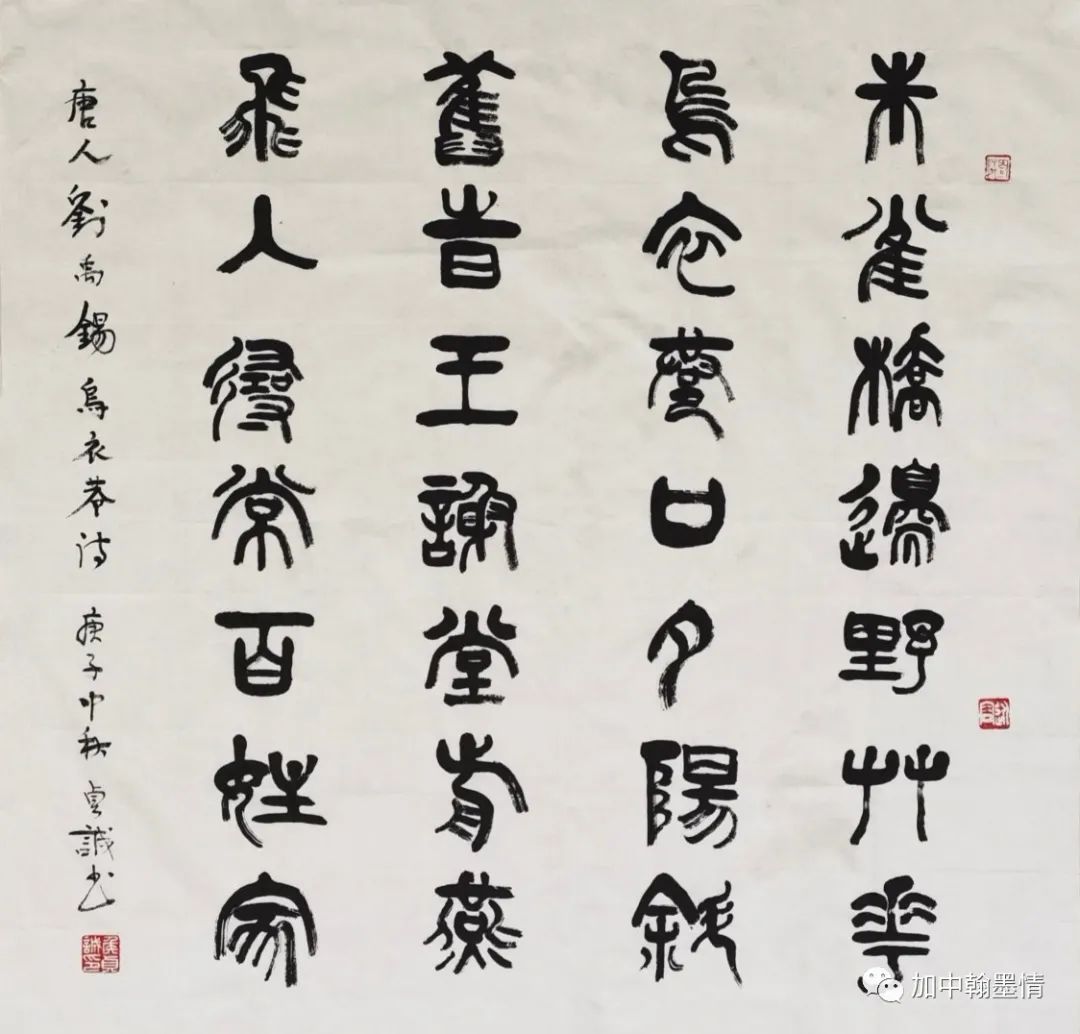 朱雀橋邊野艸華
烏衣巷口夕陽斜
舊旹王謝堂前燕
飛入尋常百姓家
唐人劉禹錫烏衣巷詩 庚子中秋 貞誠書
侯貞誠印
加中翰墨情